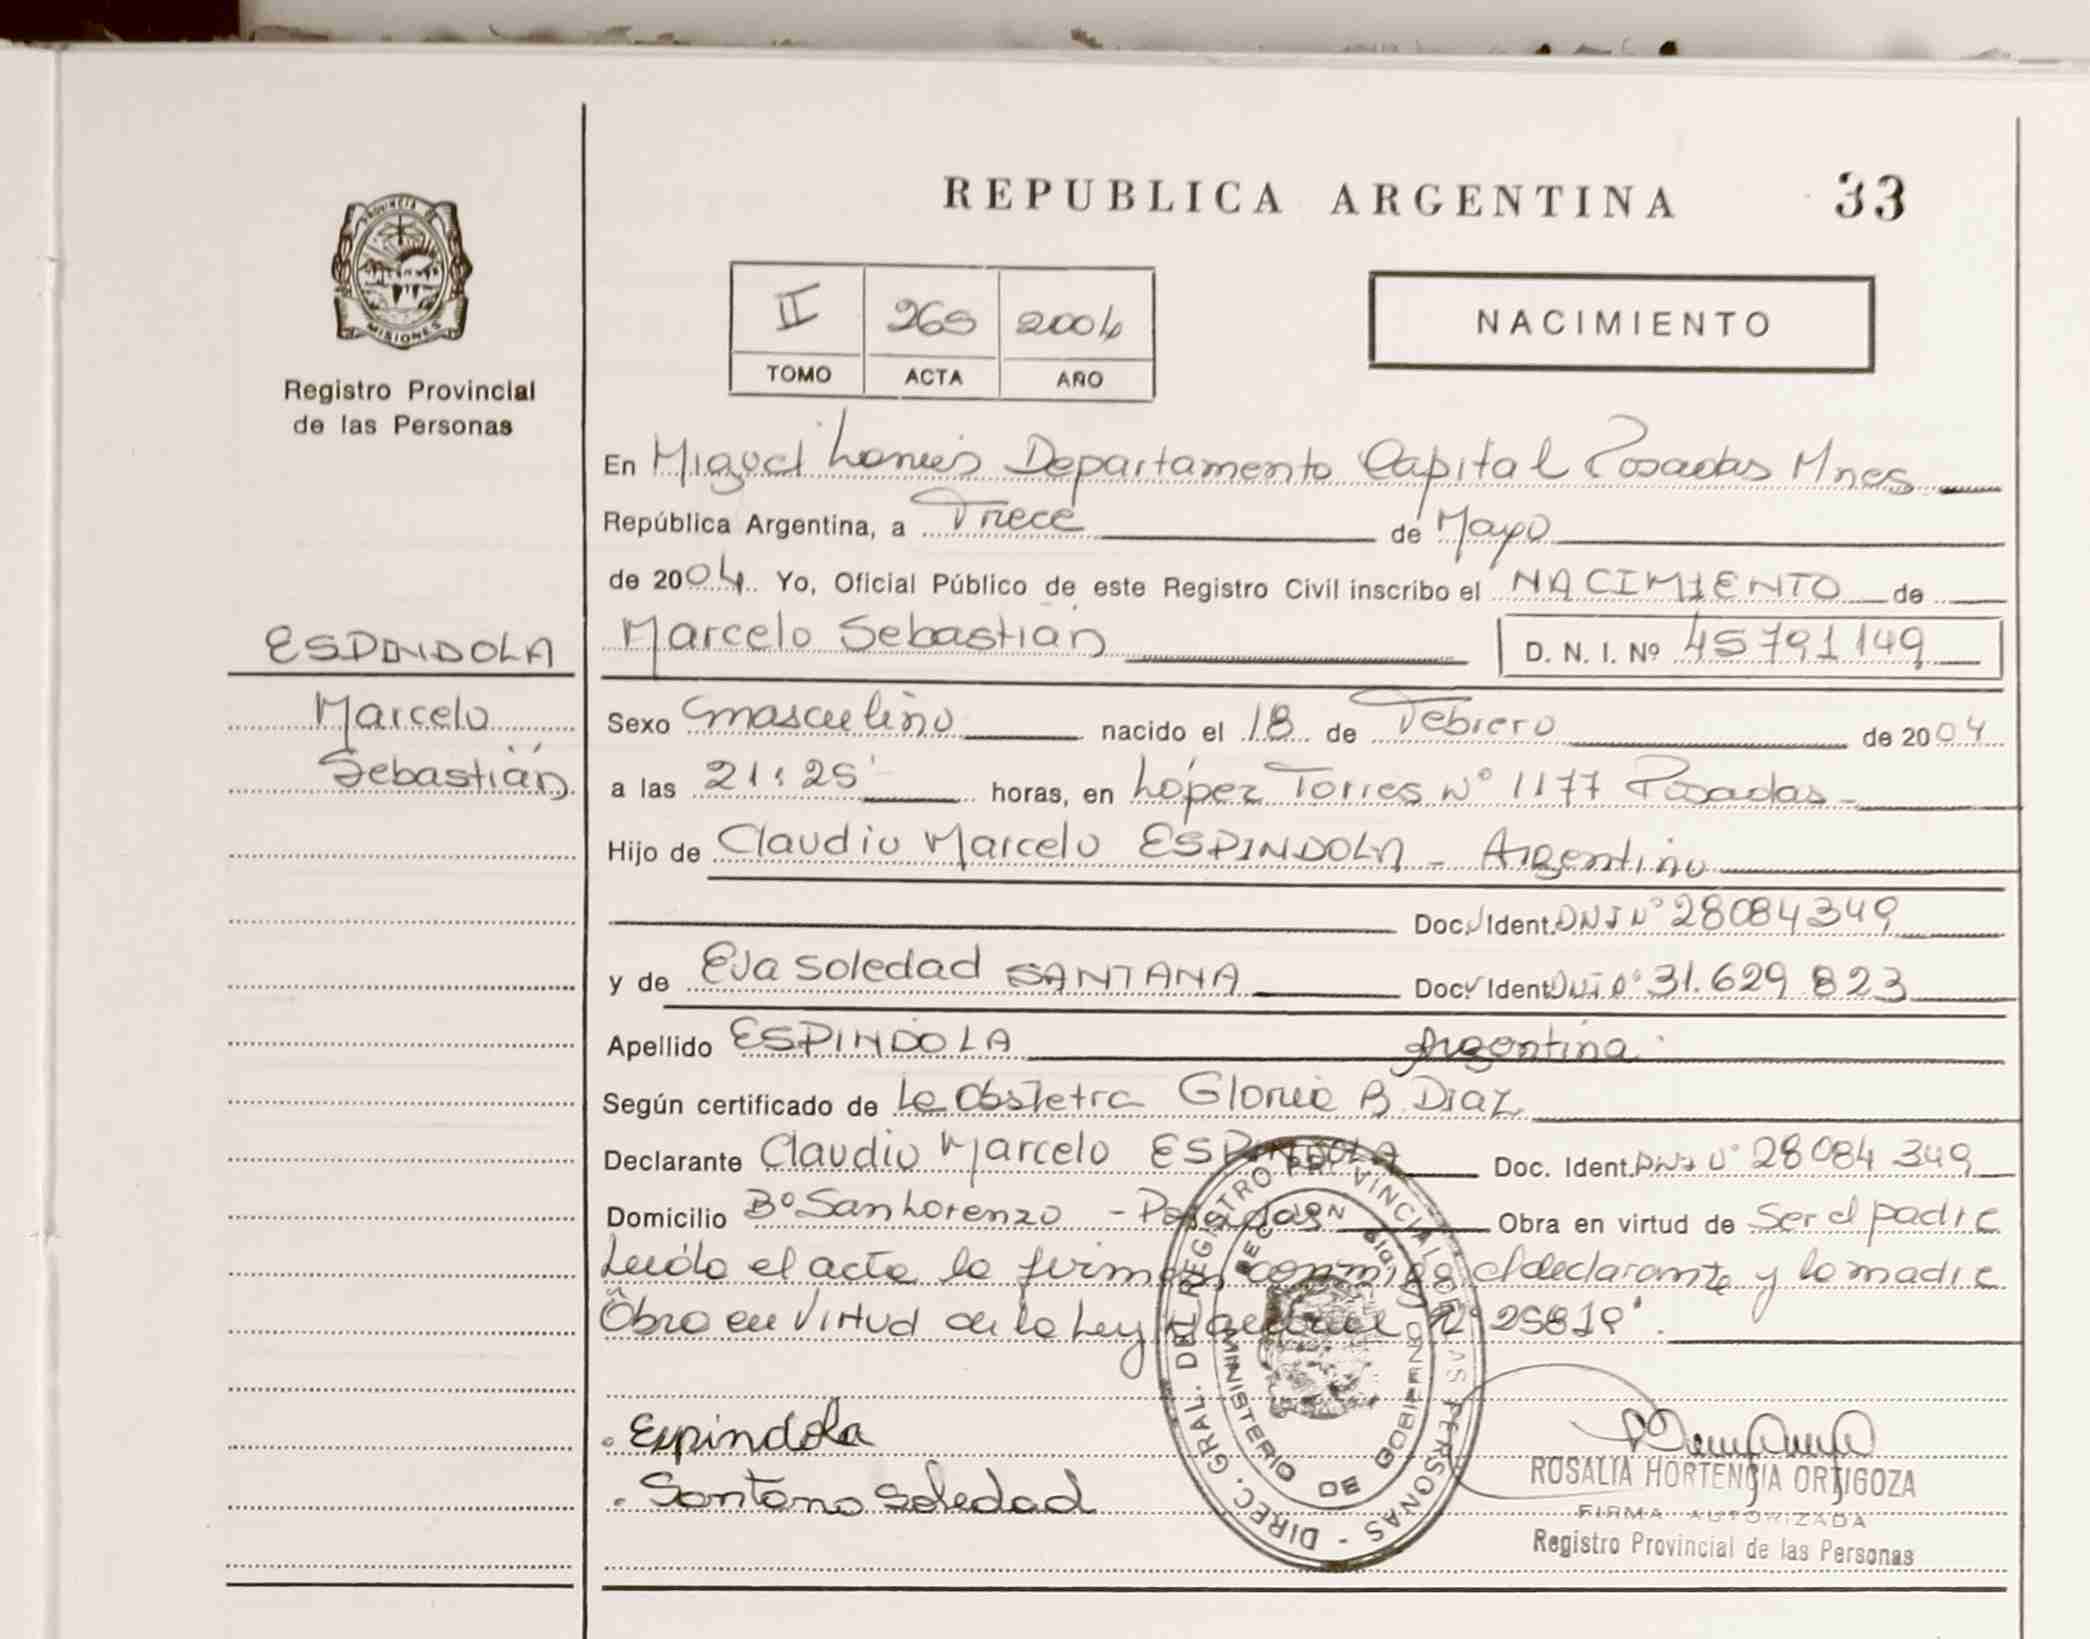 REPUBLICA ARGENTINA 33
PROVINCIA DE
MISIONES
Registro Provincial
de las Personas
II 265 2004
TOMO ACTA AÑO
NACIMIENTO
En Miguel Lanús Departamento Capital Posadas Mnes
República Argentina, a Trece de Mayo
de 2004 Yo, Oficial Público de este Registro Civil inscribo el NACIMIENTO de
ESPINDOLA
Marcelo
Sebastián
Marcelo Sebastián D. N. I. Nº 45791149
Sexo masculino nacido el 18 de Febrero de 2004
a las 21:25' horas, en López Torres Nº 1177 Posadas-
Hijo de Claudio Marcelo ESPINDOLA - Argentino
Doc. Ident. DNI Nº 28084349
y de Eva Soledad SANTANA Doc. Ident. DNI Nº 31.629.823
Apellido ESPINDOLA Argentina.
Según certificado de la Obstetra Gloria B. Diaz
Declarante Claudio Marcelo ESPINDOLA Doc. Ident. DNI Nº 28084349
Domicilio Bº San Lorenzo - Posadas Obra en virtud de Ser el padre
Leído el acta la firman conmigo el declarante y la madre
Obro en Virtud de la Ley Nº 25819".
Espindola
Santana Soledad
DIREC. GRAL. DEL REGISTRO PROVINCIAL DE LAS PERSONAS
MINISTERIO DE GOBIERNO
ROSALIA HORTENCIA ORTIGOZA
FIRMA AUTORIZADA
Registro Provincial de las Personas